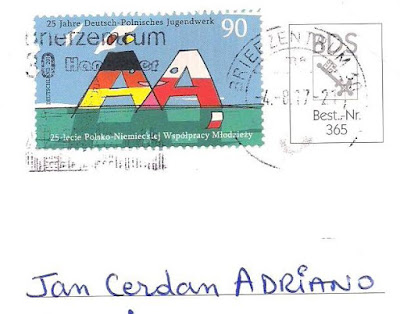 25 Jahre Deutsch-Polnisches Jugendwerk
90
Briefzentrum
30
DEUTSCHLAND
AA
25-lecie Polsko-Niemieckiej Współpracy Młodzieży
BRIEFZENTRUM 30
BDS
Best.-Nr.
365
Jan Cerdan ADRIANO